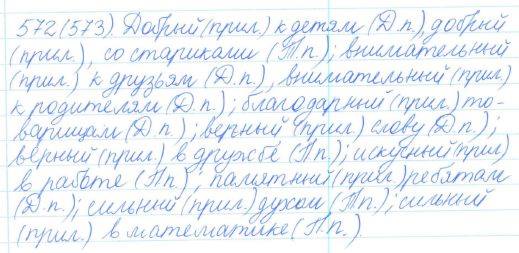 572(573). Добрый (прил.) к детям (Д.п.), добрый
(прил.), со стариками (Т.п.); внимательный
(прил.) к друзьям (Д.п.), внимательный (прил.)
к родителям (Д.п.); благодарный (прил.) то-
варищам (Д.п.); верный (прил.) слову (Д.п.);
верный (прил.) в дружбе (П.п.); искусный (прил.)
в работе (П.п.), памятный (прил.) ребятам
(Д.п.); сильный (прил.) духом (Т.п.); сильный
(прил.) в математике (П.п.)